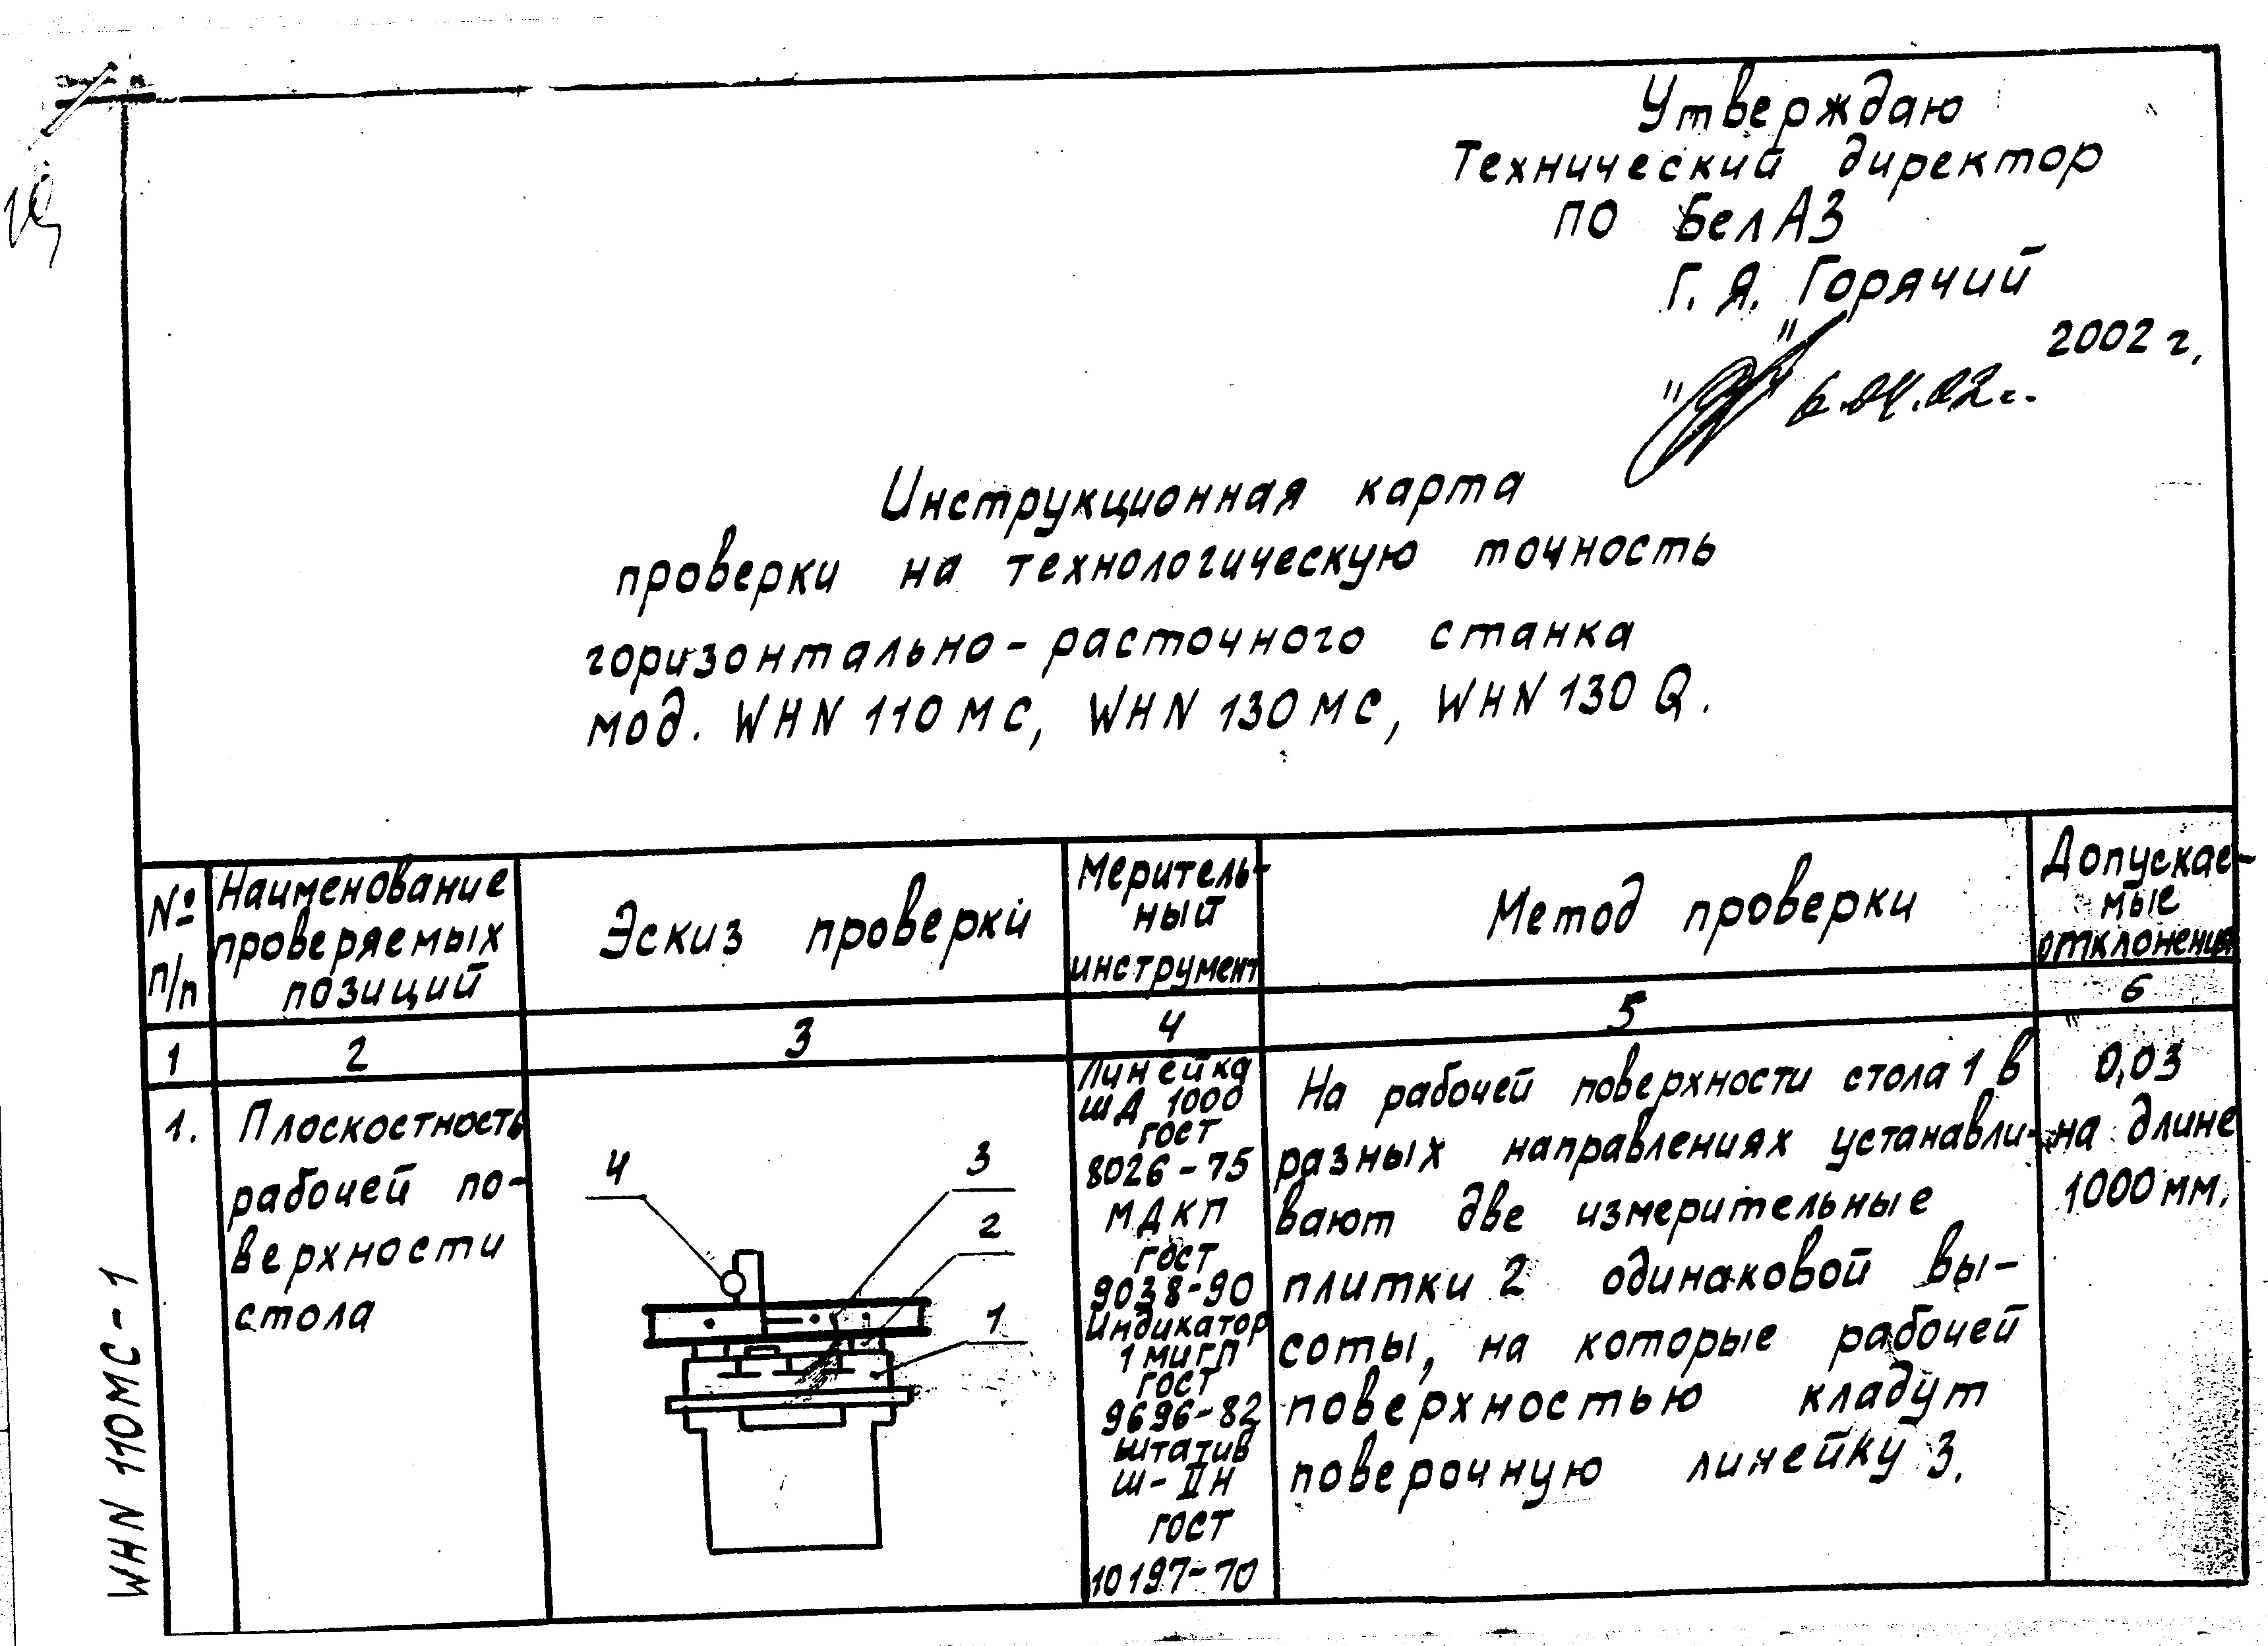 Утверждаю
Технический директор
ПО БелАЗ
Г. Я. Горячий
" " 2002 г.
6.04.02 г.
Инструкционная карта
проверки на технологическую точность
горизонтально-расточного станка
мод. WHN 110 MC, WHN 130 MC, WHN 130 Q.
№ п/п
Наименование
проверяемых
позиций
Эскиз проверки
Меритель-
ный
инструмент
Метод проверки
Допускае-
мые
отклонения
1 2 3 4 5 6
1.
Плоскостность
рабочей по-
верхности
стола
4
3
2
1
Линейка
ШД 1000
ГОСТ
8026-75
МДКП
ГОСТ
9038-90
Индикатор
1 МИГП
ГОСТ
9696-82
Штатив
Ш-IIН
ГОСТ
10197-70
На рабочей поверхности стола 1 в
разных направлениях устанавли-
вают две измерительные
плитки 2 одинаковой вы-
соты, на которые рабочей
поверхностью кладут
поверочную линейку 3.
0,03
на длине
1000 мм.
WHN 110MC-1